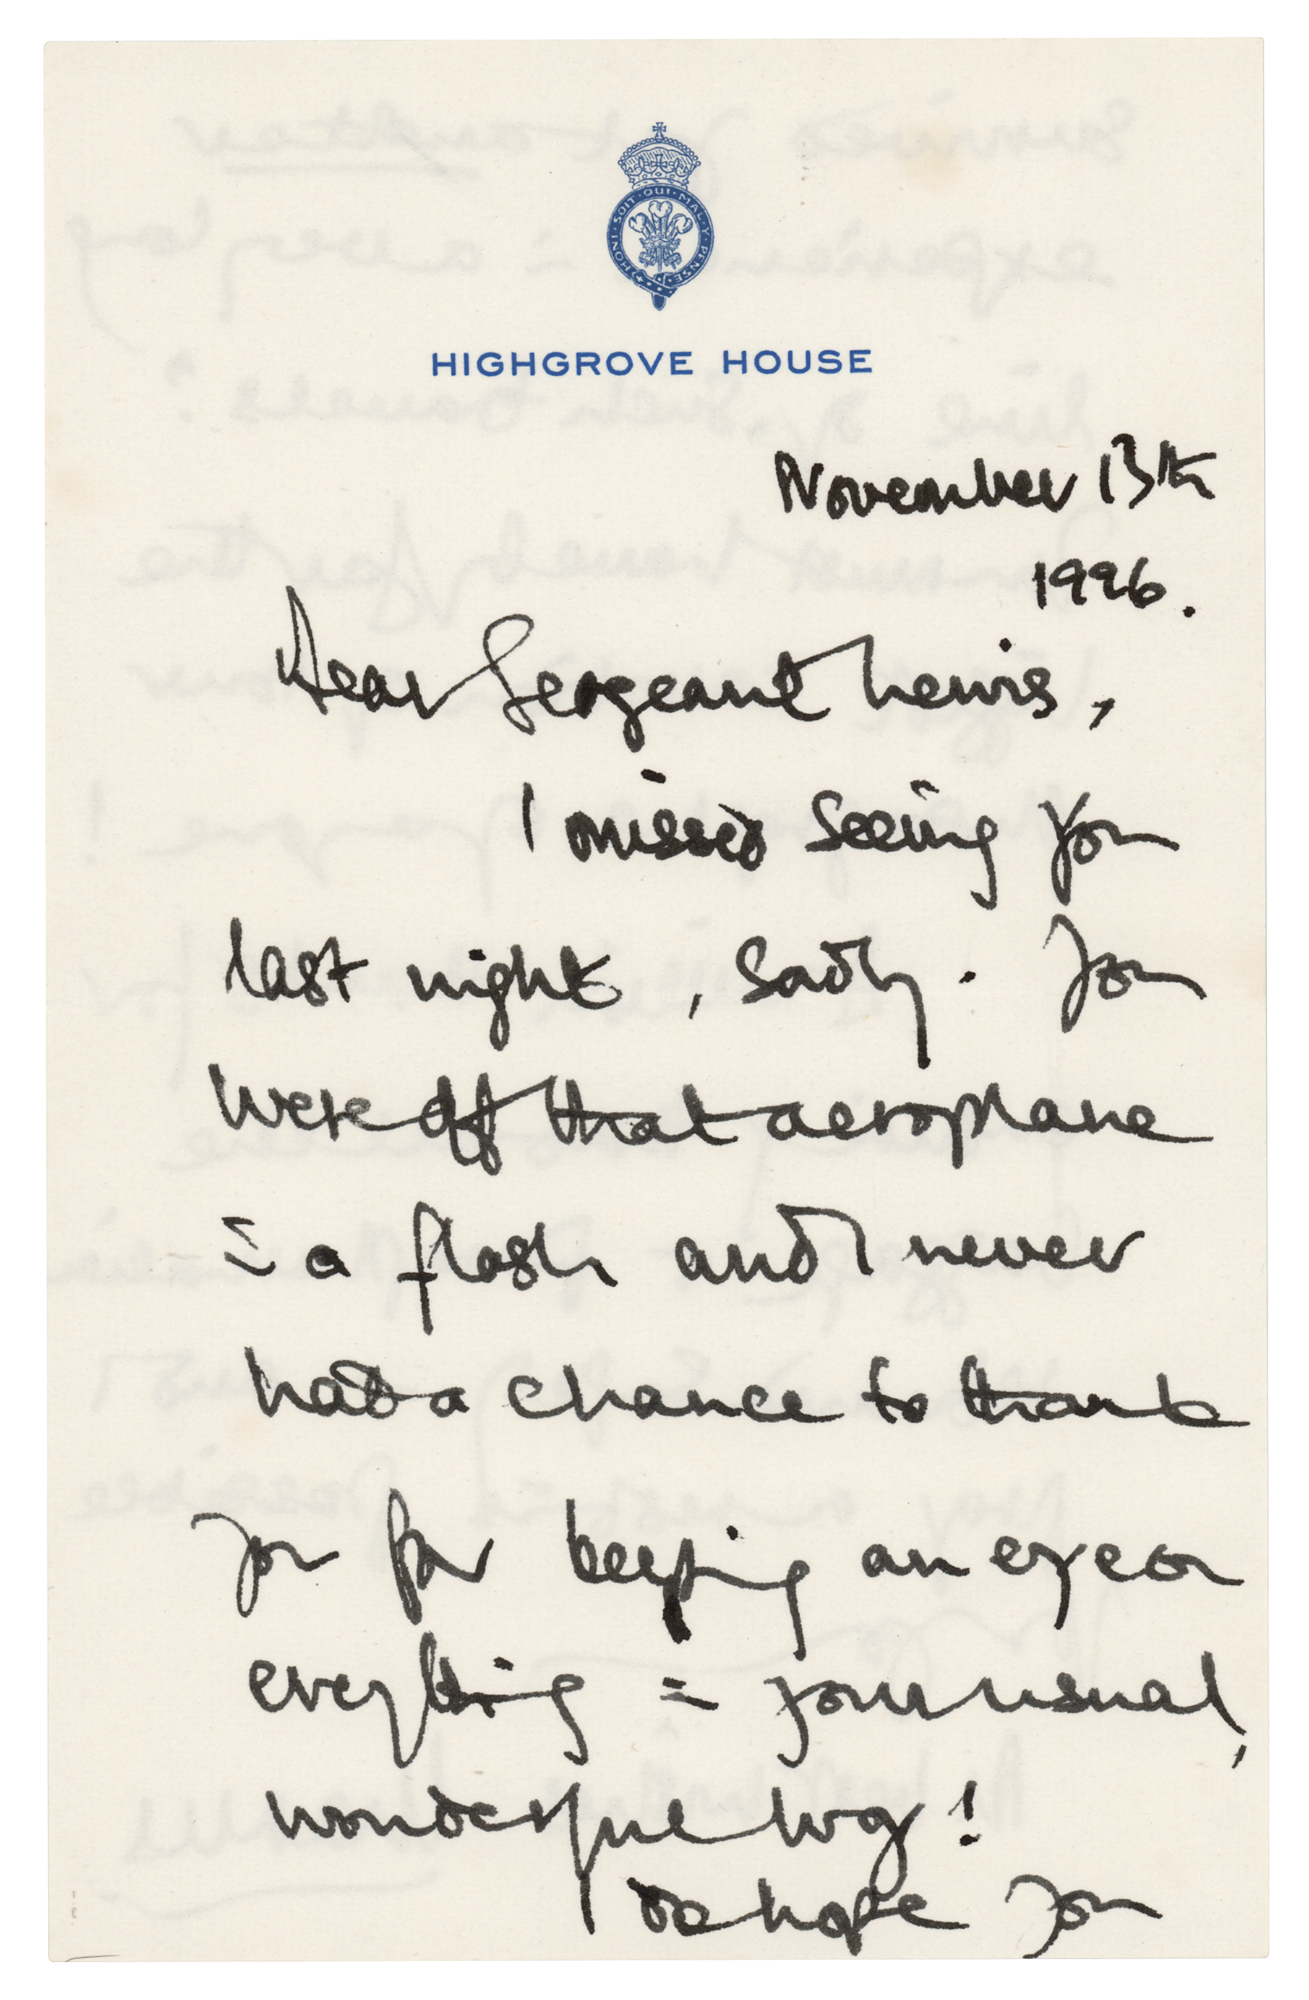 HONI · SOIT · QUI · MAL · Y · PENSE
HIGHGROVE HOUSE
November 13th
1996.
Dear Sergeant Lewis,
I missed seeing you
last night, sadly. You
were off that aeroplane
in a flash and I never
had a chance to thank
you for keeping an eye on
everything in your usual,
wonderful way!
Do hope you